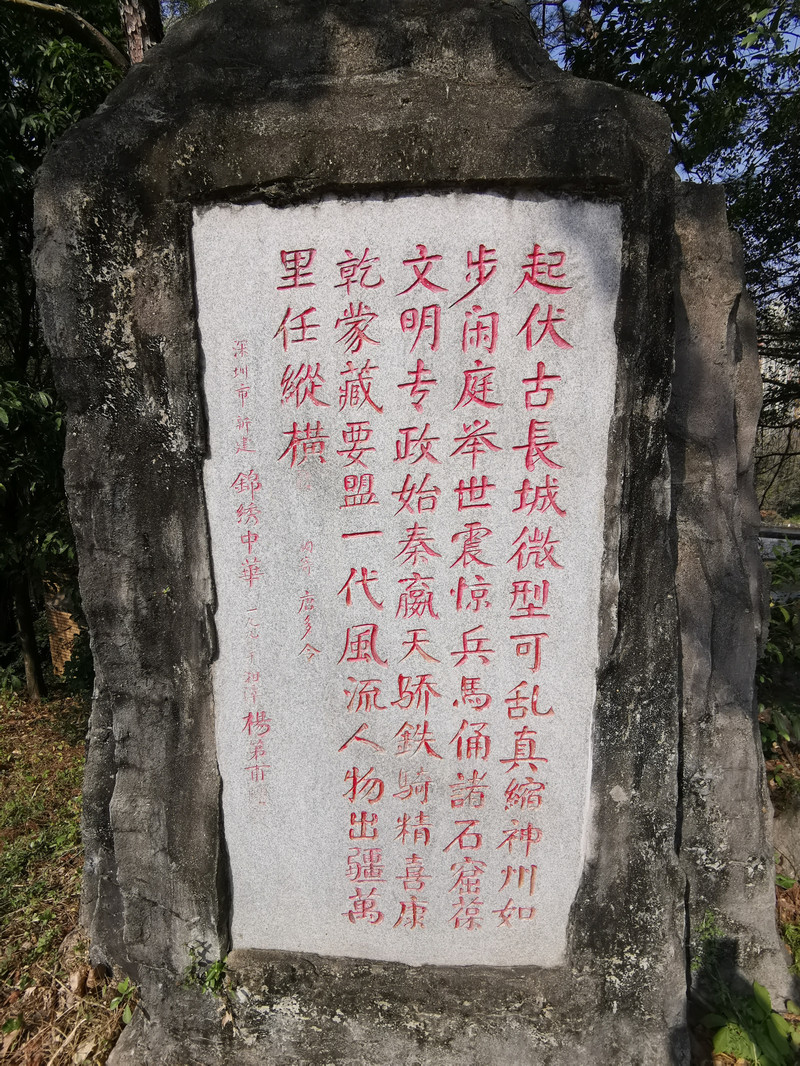 起伏古長城微型可乱真縮神州如
步闲庭举世震惊兵馬俑諸石窟葆
文明专政始秦嬴天骄鉄騎精喜康
乾蒙藏要盟一代風流人物出疆萬
里任縱橫
唐多令
深圳市新建錦綉中華一九九
楊弟甫